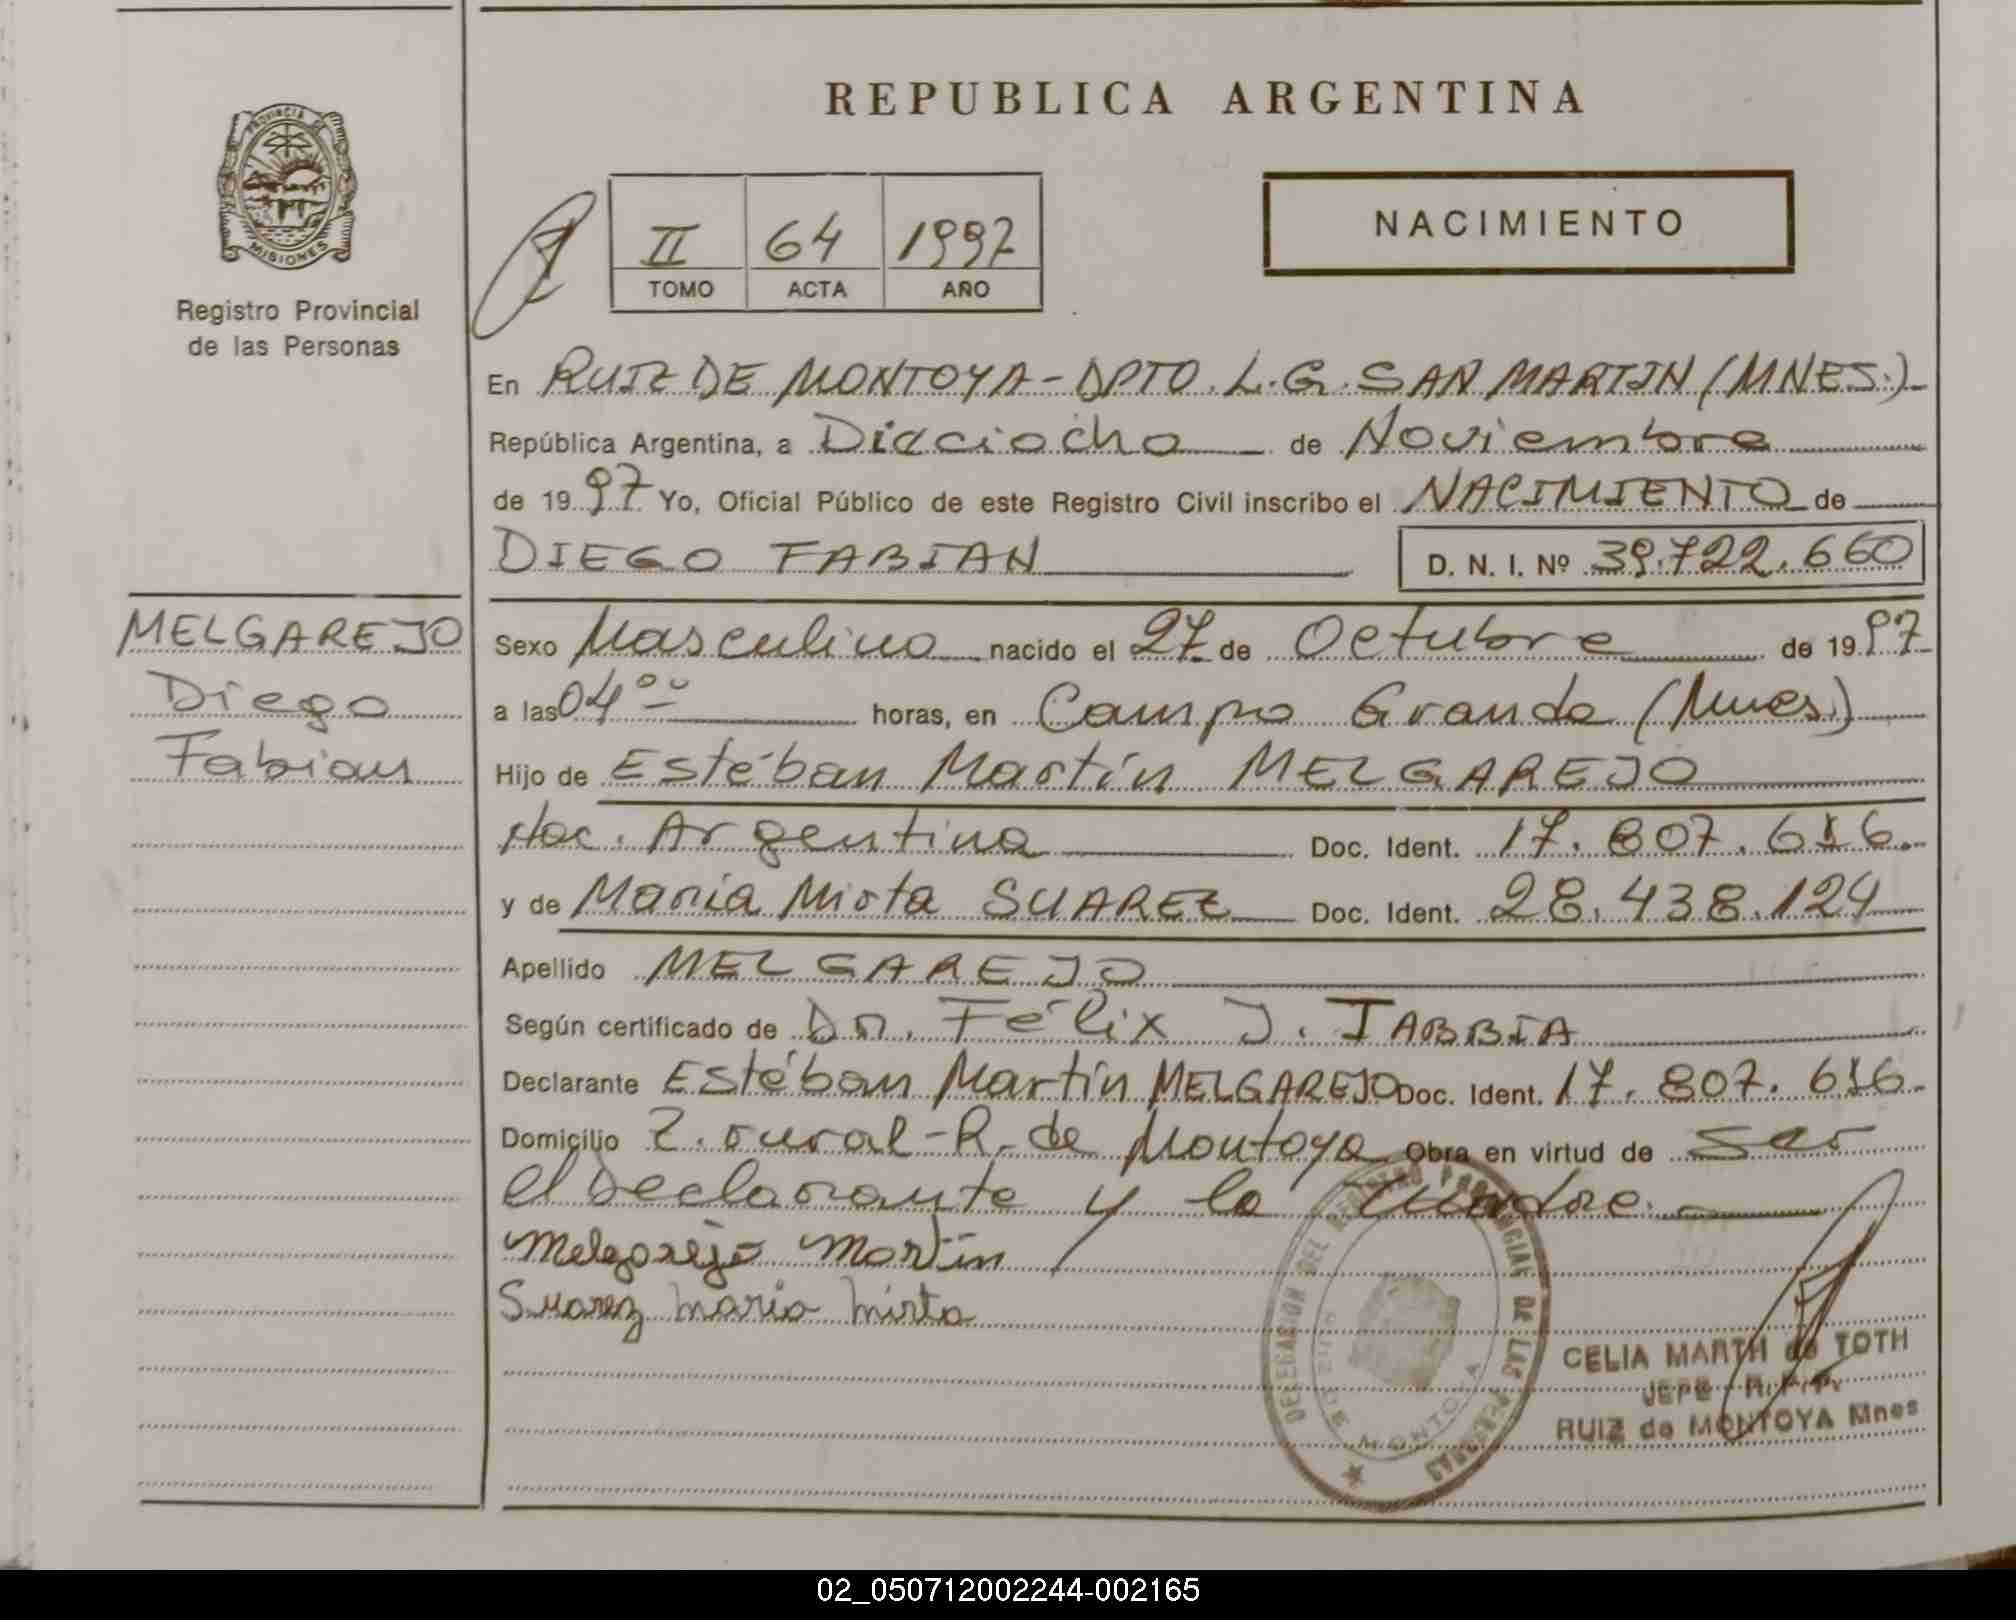 PROVINCIA DE
MISIONES
Registro Provincial
de las Personas
MELGAREJO
Diego
Fabian
REPUBLICA ARGENTINA
II 64 1997
TOMO ACTA AÑO
NACIMIENTO
En RUIZ DE MONTOYA - DPTO. L. G. SAN MARTIN (MNES.)
República Argentina, a Dieciocho de Noviembre
de 1997 Yo, Oficial Público de este Registro Civil inscribo el NACIMIENTO de
DIEGO FABIAN D. N. I. Nº 39.722.660
Sexo Masculino nacido el 27 de Octubre de 1997
a las 04 ºº horas, en Campo Grande (Mnes.)
Hijo de Estéban Martín MELGAREJO
Nac. Argentina Doc. Ident. 17.807.616.
y de Maria Mirta SUAREZ Doc. Ident. 28.438.124
Apellido MELGAREJO
Según certificado de Dr. Félix J. IABBIA
Declarante Estéban Martín MELGAREJO Doc. Ident. 17.807.616.
Domicilio Z. rural - R. de Montoya Obra en virtud de ser
el Declarante y la Madre.
Melgarejo Martín
Suarez Maria Mirta
DELEGACION DEL REGISTRO PROVINCIAL DE LAS PERSONAS
RUIZ DE MONTOYA
CELIA MARTH de TOTH
JEFE R.P.P.
RUIZ de MONTOYA Mnes
02_050712002244-002165